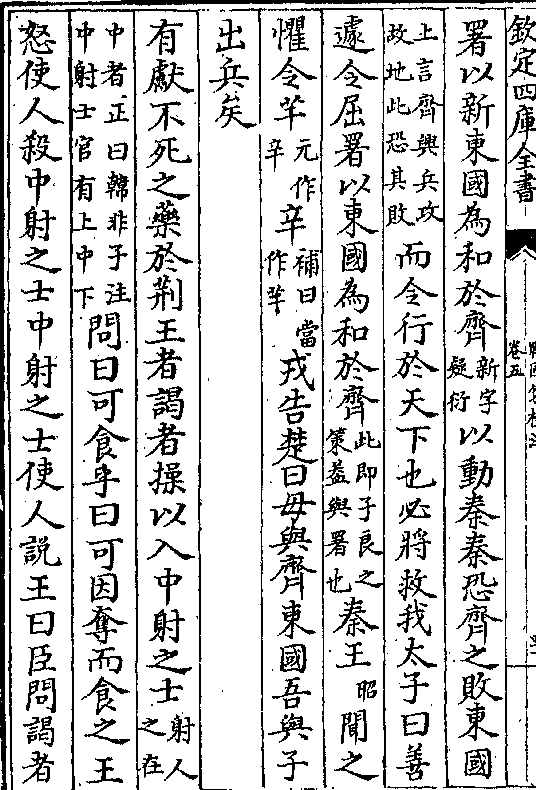 欽定四庫全書
卷五
署以新東國為和於齊新字疑衍以動秦秦恐齊之敗東國
上言齊興兵攻故地此恐其敗而令行於天下也必將救我太子曰善
遽令屈署以東國為和於齊此即子良之策蓋與署也秦王昭聞之
懼令羋元作辛辛補曰當作羋戎告楚曰毋與齊東國吾與子
出兵矣
有獻不死之藥於荆王者謁者操以入中射之士射人之在
中者正曰韓非子注中射士官有上中下問曰可食乎曰可因奪而食之王
怒使人殺中射之士中射之士使人說王曰臣問謁者